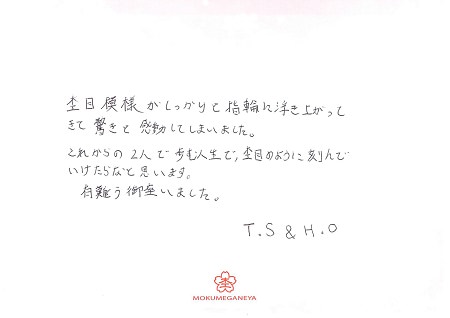 杢目模様がしっかりと指輪に浮き上がって
きて驚きと感動してしまいました。
これからの2人で歩む人生で、杢目のように刻んで
いけたらなと思います。
有難う御座いました。
T.S & H.O
杢
MOKUMEGANEYA